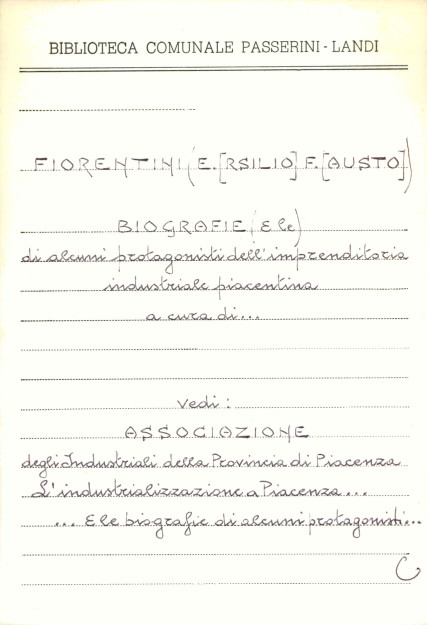 BIBLIOTECA COMUNALE PASSERINI - LANDI
FIORENTINI (E.[RSILIO] F.[AUSTO])
BIOGRAFIE (E le)
di alcuni protagonisti dell'imprenditoria
industriale piacentina
a cura di...
vedi:
ASSOCIAZIONE
degli Industriali della Provincia di Piacenza
L'industrializzazione a Piacenza...
... E le biografie di alcuni protagonisti...
C